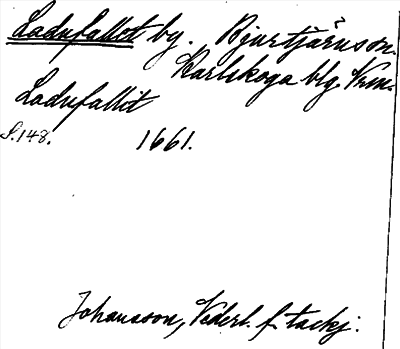 Ladufallet by. Bjurtjärns sn.
Karlskoga blg. Vrm.
Ladufallit
S. 148. 1661.
Johansson, Vederl. f. tackj.